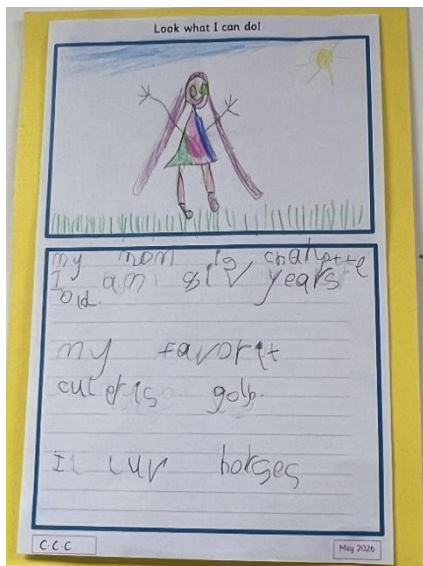 Look what I can do!
my nom is chalotte
I am six years
old.
my favorit
culer is gold.
I luv horses
C.C.C
May 2026